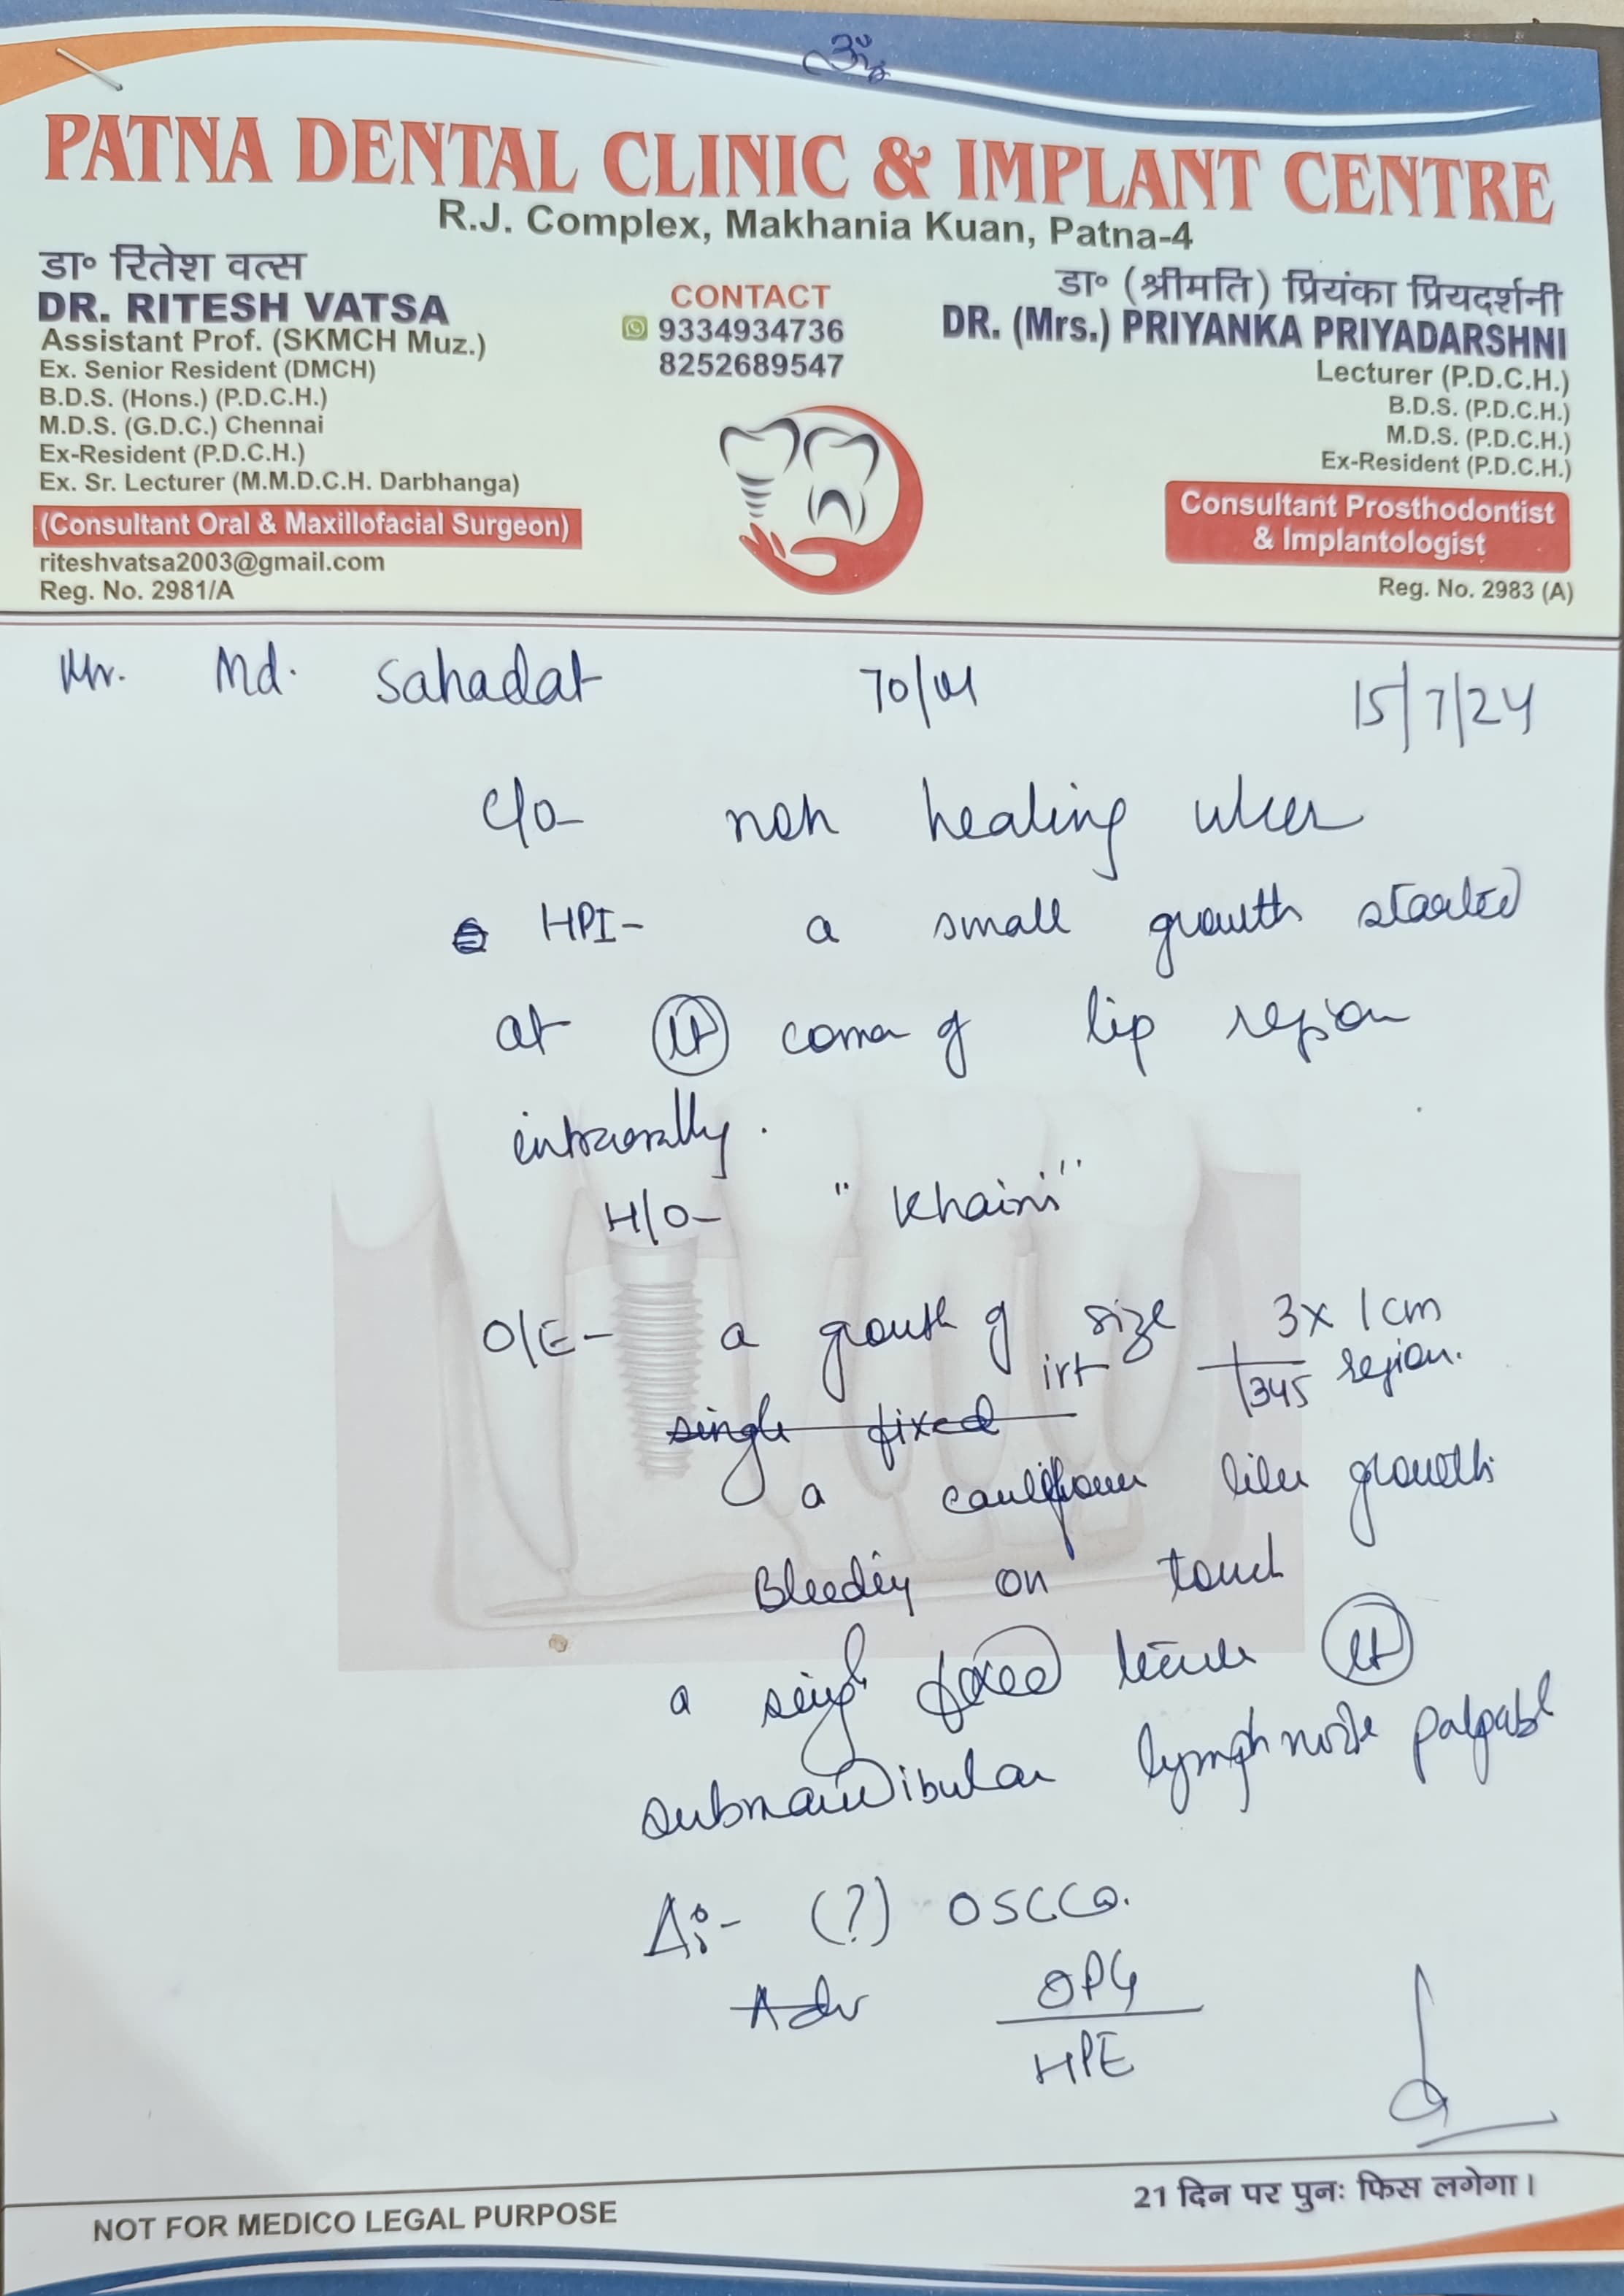 ॐ
PATNA DENTAL CLINIC & IMPLANT CENTRE
R.J. Complex, Makhania Kuan, Patna-4
डा॰ रितेश वत्स
DR. RITESH VATSA
Assistant Prof. (SKMCH Muz.)
Ex. Senior Resident (DMCH)
B.D.S. (Hons.) (P.D.C.H.)
M.D.S. (G.D.C.) Chennai
Ex-Resident (P.D.C.H.)
Ex. Sr. Lecturer (M.M.D.C.H. Darbhanga)
(Consultant Oral & Maxillofacial Surgeon)
riteshvatsa2003@gmail.com
Reg. No. 2981/A
CONTACT
9334934736
8252689547
डा॰ (श्रीमति) प्रियंका प्रियदर्शनी
DR. (Mrs.) PRIYANKA PRIYADARSHNI
Lecturer (P.D.C.H.)
B.D.S. (P.D.C.H.)
M.D.S. (P.D.C.H.)
Ex-Resident (P.D.C.H.)
Consultant Prosthodontist
& Implantologist
Reg. No. 2983 (A)
Mr. Md. Sahadat 70/M 15/7/24
C/o- non healing ulcer
HPI- a small growth started
at Lt corner of lip region
intraorally.
H/O- "Khaini"
O/E- a growth of size 3x1cm
irt 345 region.
single fixed
a cauliflower like growth
Bleeding on touch
a single fixed Lt
submandibular lymphnode palpable
Δ:- (?) OSCC
Adv OPG
HPE
NOT FOR MEDICO LEGAL PURPOSE
21 दिन पर पुनः फिस लगेगा।